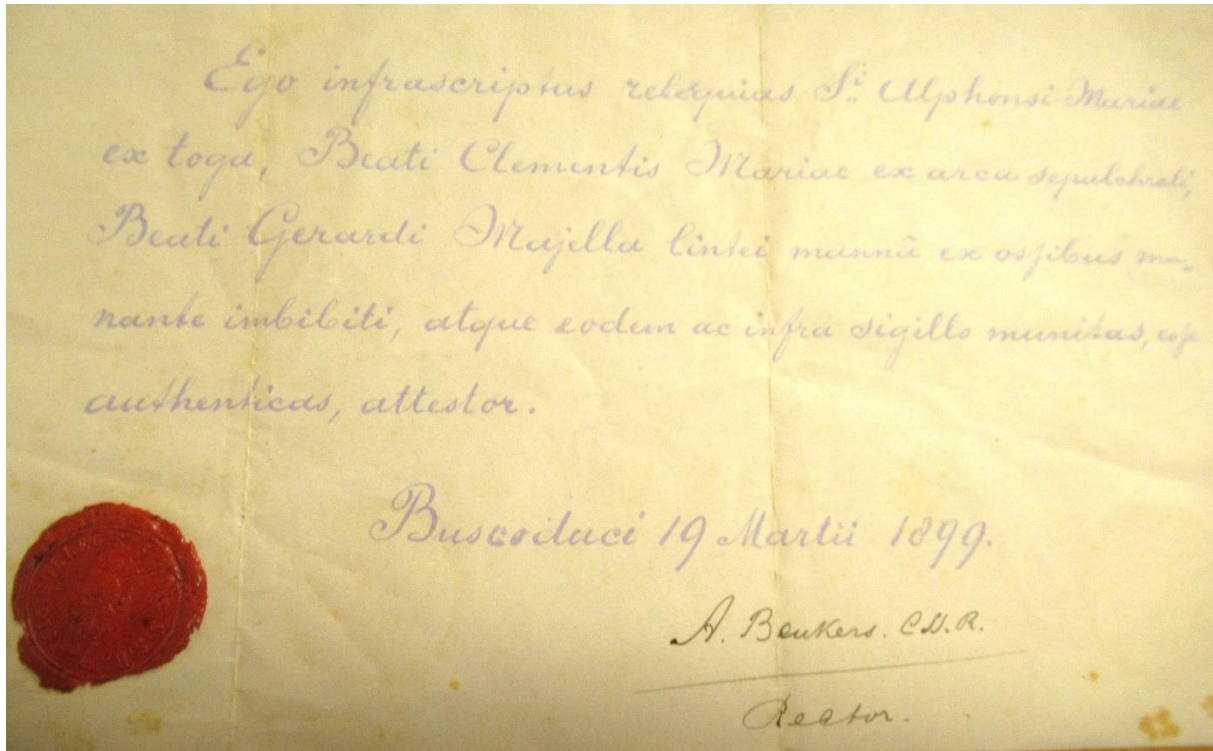 Ego infrascriptus reliquias S.ti Alphonsi Mariae
ex toga, Beati Clementis Mariae ex arca sepulchrali,
Beati Gerardi Majella lintei mannâ ex ossibus ma-
nante imbibiti, atque eodem ac infra sigillo munitas, esse
authenticas, attestor.
Buscoduci 19 Martii 1899.
A. Beukers. C.SS.R.
Rector.